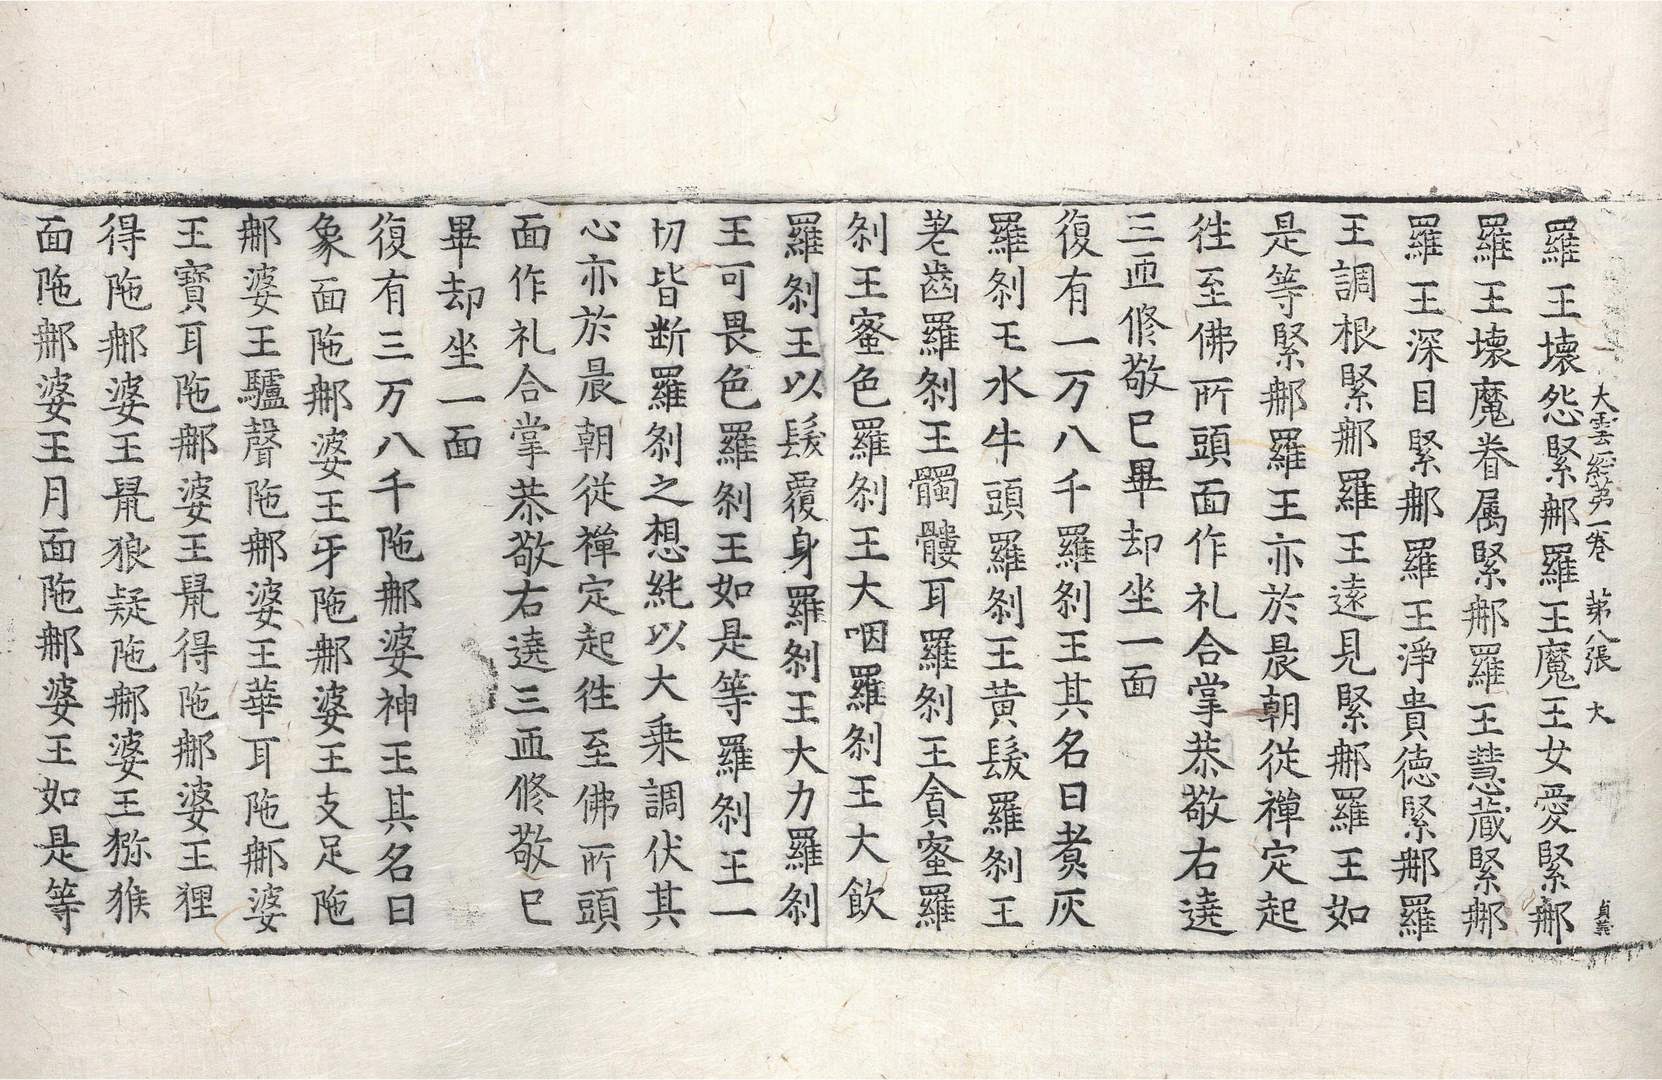 大雲經第一卷　第八張　大　貞義
羅王壞怨緊那羅王魔王女愛緊那
羅王壞魔眷属緊那羅王慧蔵緊那
羅王深目緊那羅王淨貴徳緊那羅
王調根緊那羅王遠見緊那羅王如
是等緊那羅王亦於晨朝從禪定起
徃至佛所頭面作礼合掌恭敬右遶
三迊修敬已畢却坐一面
復有一万八千羅刹王其名曰煑灰
羅刹王水牛頭羅刹王黃髮羅刹王
老齒羅刹王髑髏耳羅刹王貪蜜羅
刹王蜜色羅刹王大咽羅刹王大飲
羅刹王以髮覆身羅刹王大力羅刹
王可畏色羅刹王如是等羅刹王一
切皆断羅刹之想純以大乗調伏其
心亦於晨朝從禪定起徃至佛所頭
面作礼合掌恭敬右遶三迊修敬已
畢却坐一面
復有三万八千陁那婆神王其名曰
象面陁那婆王牙陁那婆王支足陁
那婆王驢聲陁那婆王華耳陁那婆
王寶耳陁那婆王鼠得陁那婆王狸
得陁那婆王鼠狼疑陁那婆王猕猴
面陁那婆王月面陁那婆王如是等